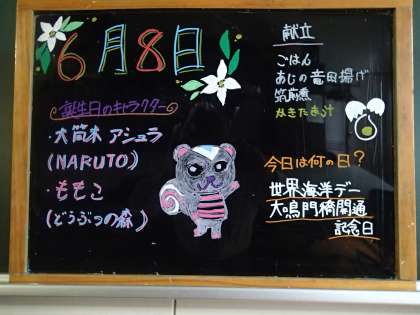 6月8日
誕生日のキャラクター
・大筒木 アシュラ
(NARUTO)
・ももこ
(どうぶつの森)
献立
ごはん
あじの竜田揚げ
筑前煮
かきたま汁
今日は何の日?
世界海洋デー
大鳴門橋開通
記念日